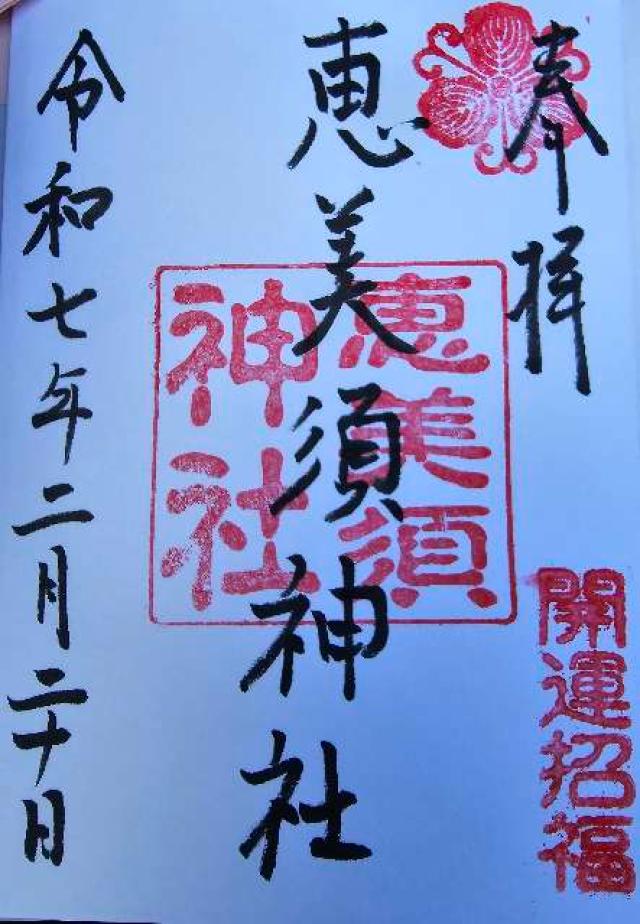 奉拝
開運招福
恵美須神社
恵美須
神社
令和七年二月二十日